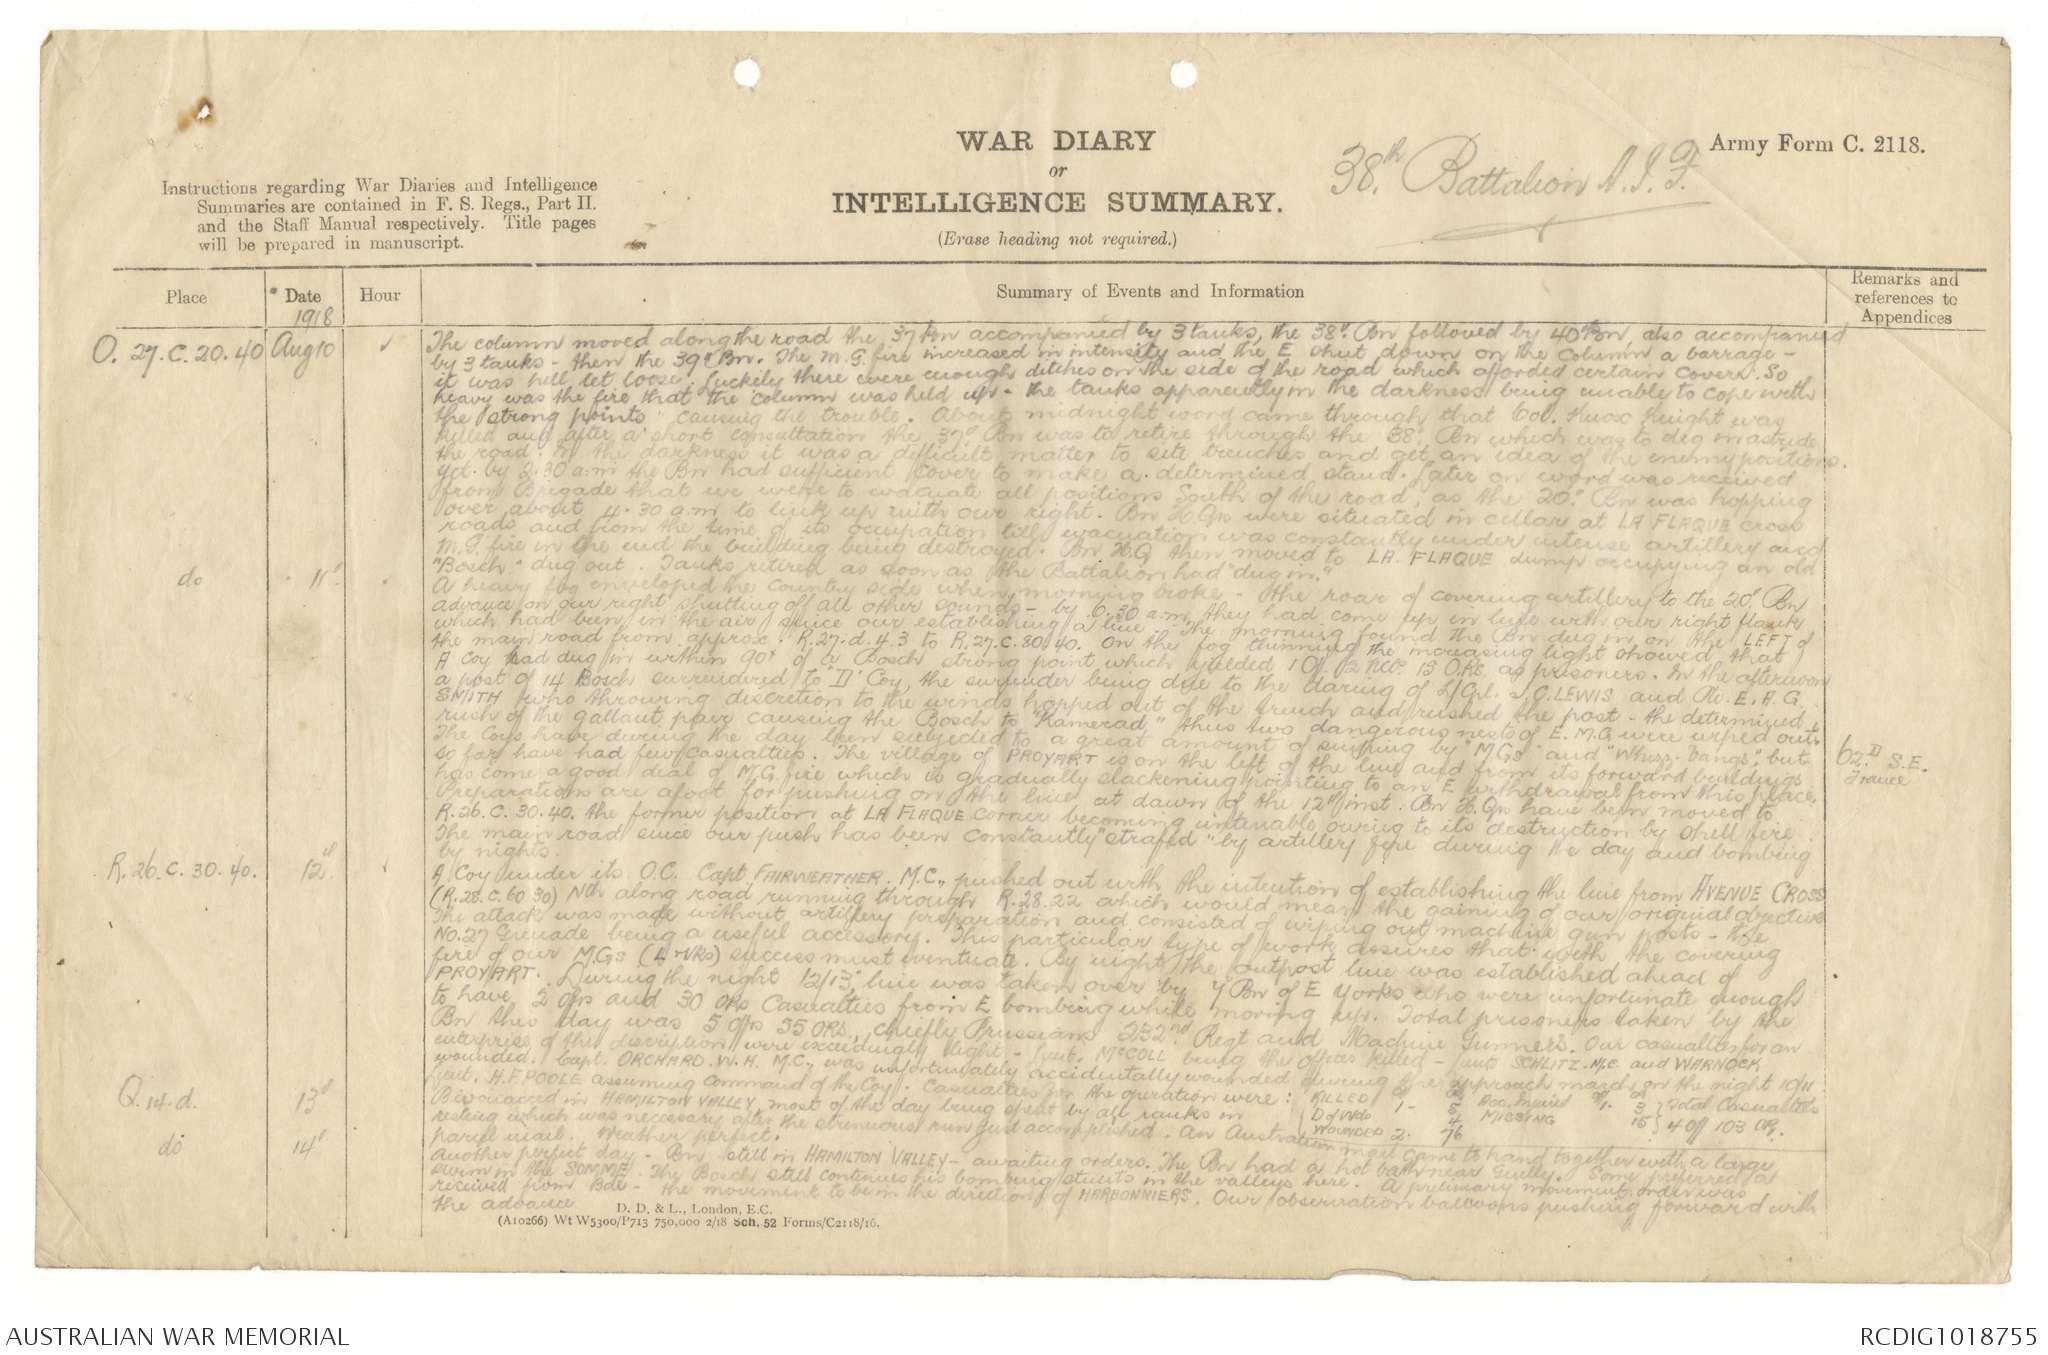 WAR DIARY
or
INTELLIGENCE SUMMARY.
(Erase heading not required.)
38th Battalion A.I.F.
Army Form C. 2118.
Instructions regarding War Diaries and Intelligence
Summaries are contained in F. S. Regs., Part II.
and the Staff Manual respectively. Title pages
will be prepared in manuscript.
Place
Date
1918
Hour
Summary of Events and Information
Remarks and
references to
Appendices
O. 27. C. 20. 40 Aug 10
The column moved along the road the 37 Bn accompanied by 3 tanks, the 38th Bn followed by 40th Bn, also accompanied
by 3 tanks - then the 39th Bn. The M.G. fire increased in intensity and the E shut down on the column a barrage -
it was hell let loose. Luckily there were enough ditches on the side of the road which afforded certain cover. So
heavy was the fire that the column was held up - the tanks apparently in the darkness being unable to cope with
the strong points causing the trouble. About midnight word came through that Col. Knox Knight was
killed and after a short consultation the 37th Bn was to retire through the 38th Bn which was to dig in astride
the road. In the darkness it was a difficult matter to site trenches and get an idea of the enemy positions.
Yet by 2.30 a.m the Bn had sufficient cover to make a determined stand. Later on word was received
from Brigade that we were to evacuate all positions South of the road, as the 20th Bn was hopping
over about 4.30 a.m to link up with our right. Bn H.Qrs were situated in cellar at LA FLAQUE cross
roads and from the time of its occupation till evacuation was constantly under intense artillery and
M.G. fire in the end the building being destroyed. Bn H.Q then moved to LA FLAQUE dump occupying an old
"Bosch" dug out. Tanks retired as soon as the Battalion had "dug in."
do 11th
A heavy fog enveloped the country side when morning broke - the roar of covering artillery to the 20th Bn
advance on our right shutting off all other sounds - by 6.30 a.m they had come up in line with our right flank
which had been in the air since our establishing a line. The morning found the Bn dug in on the LEFT of
the main road from approx. R.27.d.4.3 to R.27.C.80.40. On the fog thinning the increasing light showed that
A Coy had dug in within 90x of a Bosch strong point which yielded 1 Of. 2 NCOs 15 O.Rs. as prisoners. In the afternoon
a post of 14 Bosch surrendered to "D" Coy, the surrender being due to the daring of L/Cpl. LEWIS and Pte. E. A. G.
SMITH who throwing discretion to the winds hopped out of the trench and rushed the post - the determined
rush of the gallant pair causing the Bosch to "Kamerad" thus two dangerous nests of E. M.G. were wiped out.
The Coys have during the day been subjected to a great amount of sniping by "MGs" and "Whizz-bangs", but
so far have had few casualties. The village of PROYART is on the left of the line and from its forward buildings
has come a good deal of M.G. fire which is gradually slackening pointing to an E withdrawal from this place.
Preparations are afoot for pushing on the line at dawn of the 12th inst. Bn H.Qrs have been moved to
R.26.C.30.40. the former position at LA FLAQUE corner becoming untenable owing to its destruction by shell fire.
The main road since our push has been constantly "strafed" by artillery fire during the day and bombing
by nights.
62D S.E.
France
R. 26. C. 30. 40. 12th
A Coy under its O.C. Capt FAIRWEATHER. M.C., pushed out with the intention of establishing the line from AVENUE CROSS
(R.28.C.60.30) Nth along road running through R.28.22 which would mean the gaining of our original objective
The attack was made without artillery preparation and consisted of wiping out machine gun posts - the
No.27 Grenade being a useful accessory. This particular type of work assures that with the covering
fire of our MGs success must eventuate. By night the outpost line was established ahead of
PROYART. During the night 12/13th line was taken over by 7 Bn of E Yorks who were unfortunate enough
to have 2 Ofrs and 30 ORs Casualties from E bombing while moving up. Total prisoners taken by the
Bn this day was 5 Offs 55 ORs, chiefly Prussians 232nd Regt and Machine Gunners. Our casualties for an
enterprise of this description were exceedingly light - Lieut. McCOLL being the officer killed - Lieuts SCHLITZ. M.C. and WARNOCK
wounded. Capt. ORCHARD. W. H. M.C., was unfortunately accidentally wounded during the approach march on the night 10/11
Lieut. H.F. POOLE assuming command of the Coy. Casualties for the operation were: KILLED Acc. Injured 1. 3 Total Casualties
D of Wds 1 - 5 MISSING 15 4 Off 103 OR.
WOUNDED 2. 76
Q. 14. d. 13th
Bivouaced in HAMILTON VALLEY most of the day being spent by all ranks in
resting which was necessary after the strenuous run just accomplished. An Australian mail came to hand together with a large
parcel mail. Weather perfect.
do 14th
Another perfect day - Bn still in HAMILTON VALLEY - awaiting orders. The Bn had a hot bath near Guilly. Some preferred a
swim in the SOMME. The Bosch still continues his bombing stunts in the valleys here. A preliminary movement order was
received from Bde - the movement to be in the direction of HARBONNIERS. Our observation balloons pushing forward with
the advance
D. D. & L., London, E.C.
(A10266) Wt W5300/P713 750,000 2/18 Sch. 52 Forms/C2118/16.
AUSTRALIAN WAR MEMORIAL
RCDIG1018755